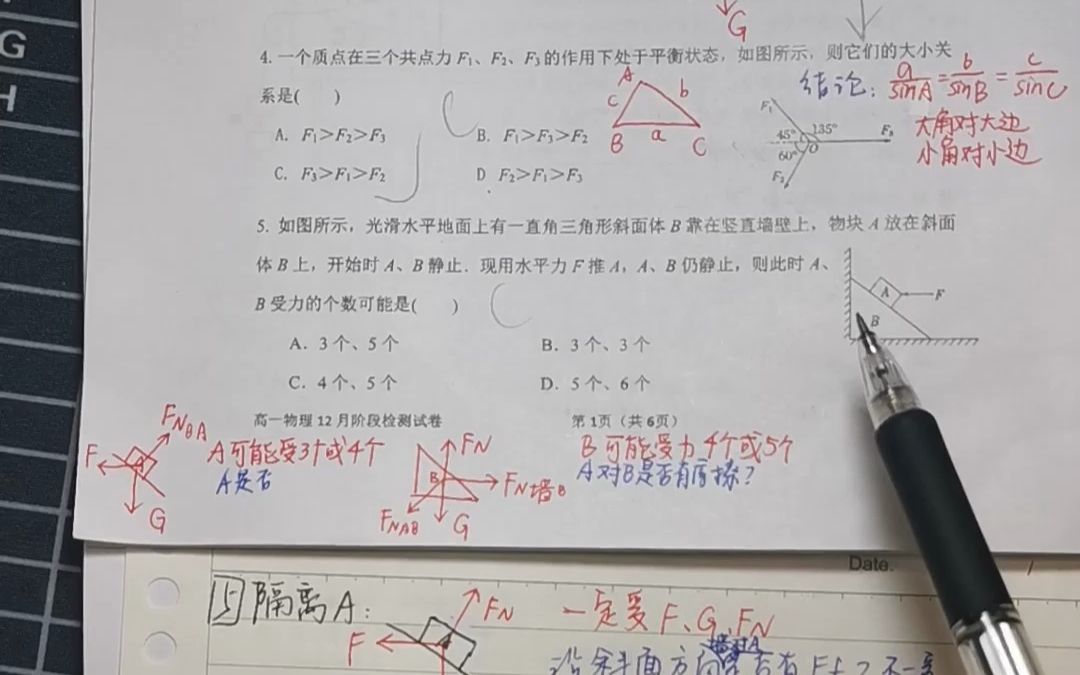 G
H
G
4. 一个质点在三个共点力 F₁、F₂、F₃的作用下处于平衡状态，如图所示，则它们的大小关
系是(　　)
结论：a/sinA = b/sinB = c/sinC
A
c
b
B
a
C
F₁
45°
135°
F₃
60°
O
F₂
大角对大边
小角对小边
A. F₁>F₂>F₃
B. F₁>F₃>F₂
C. F₃>F₁>F₂
D F₂>F₁>F₃
5. 如图所示，光滑水平地面上有一直角三角形斜面体 B 靠在竖直墙壁上，物块 A 放在斜面
体 B 上，开始时 A、B 静止．现用水平力 F 推 A，A、B 仍静止，则此时 A、
B 受力的个数可能是(　　)
A
F
B
A. 3 个、5 个
B. 3 个、3 个
C. 4 个、5 个
D. 5 个、6 个
高一物理 12 月阶段检测试卷
第 1页（共 6页）
FNBA
F
A
G
A可能受3个或4个
A是否
FN
B
FN墙B
FNAB
G
B可能受力4个或5个
A对B是否有摩擦？
Date.
5 隔离A：
FN
F
一定受 F、G、FN
沿斜面方向